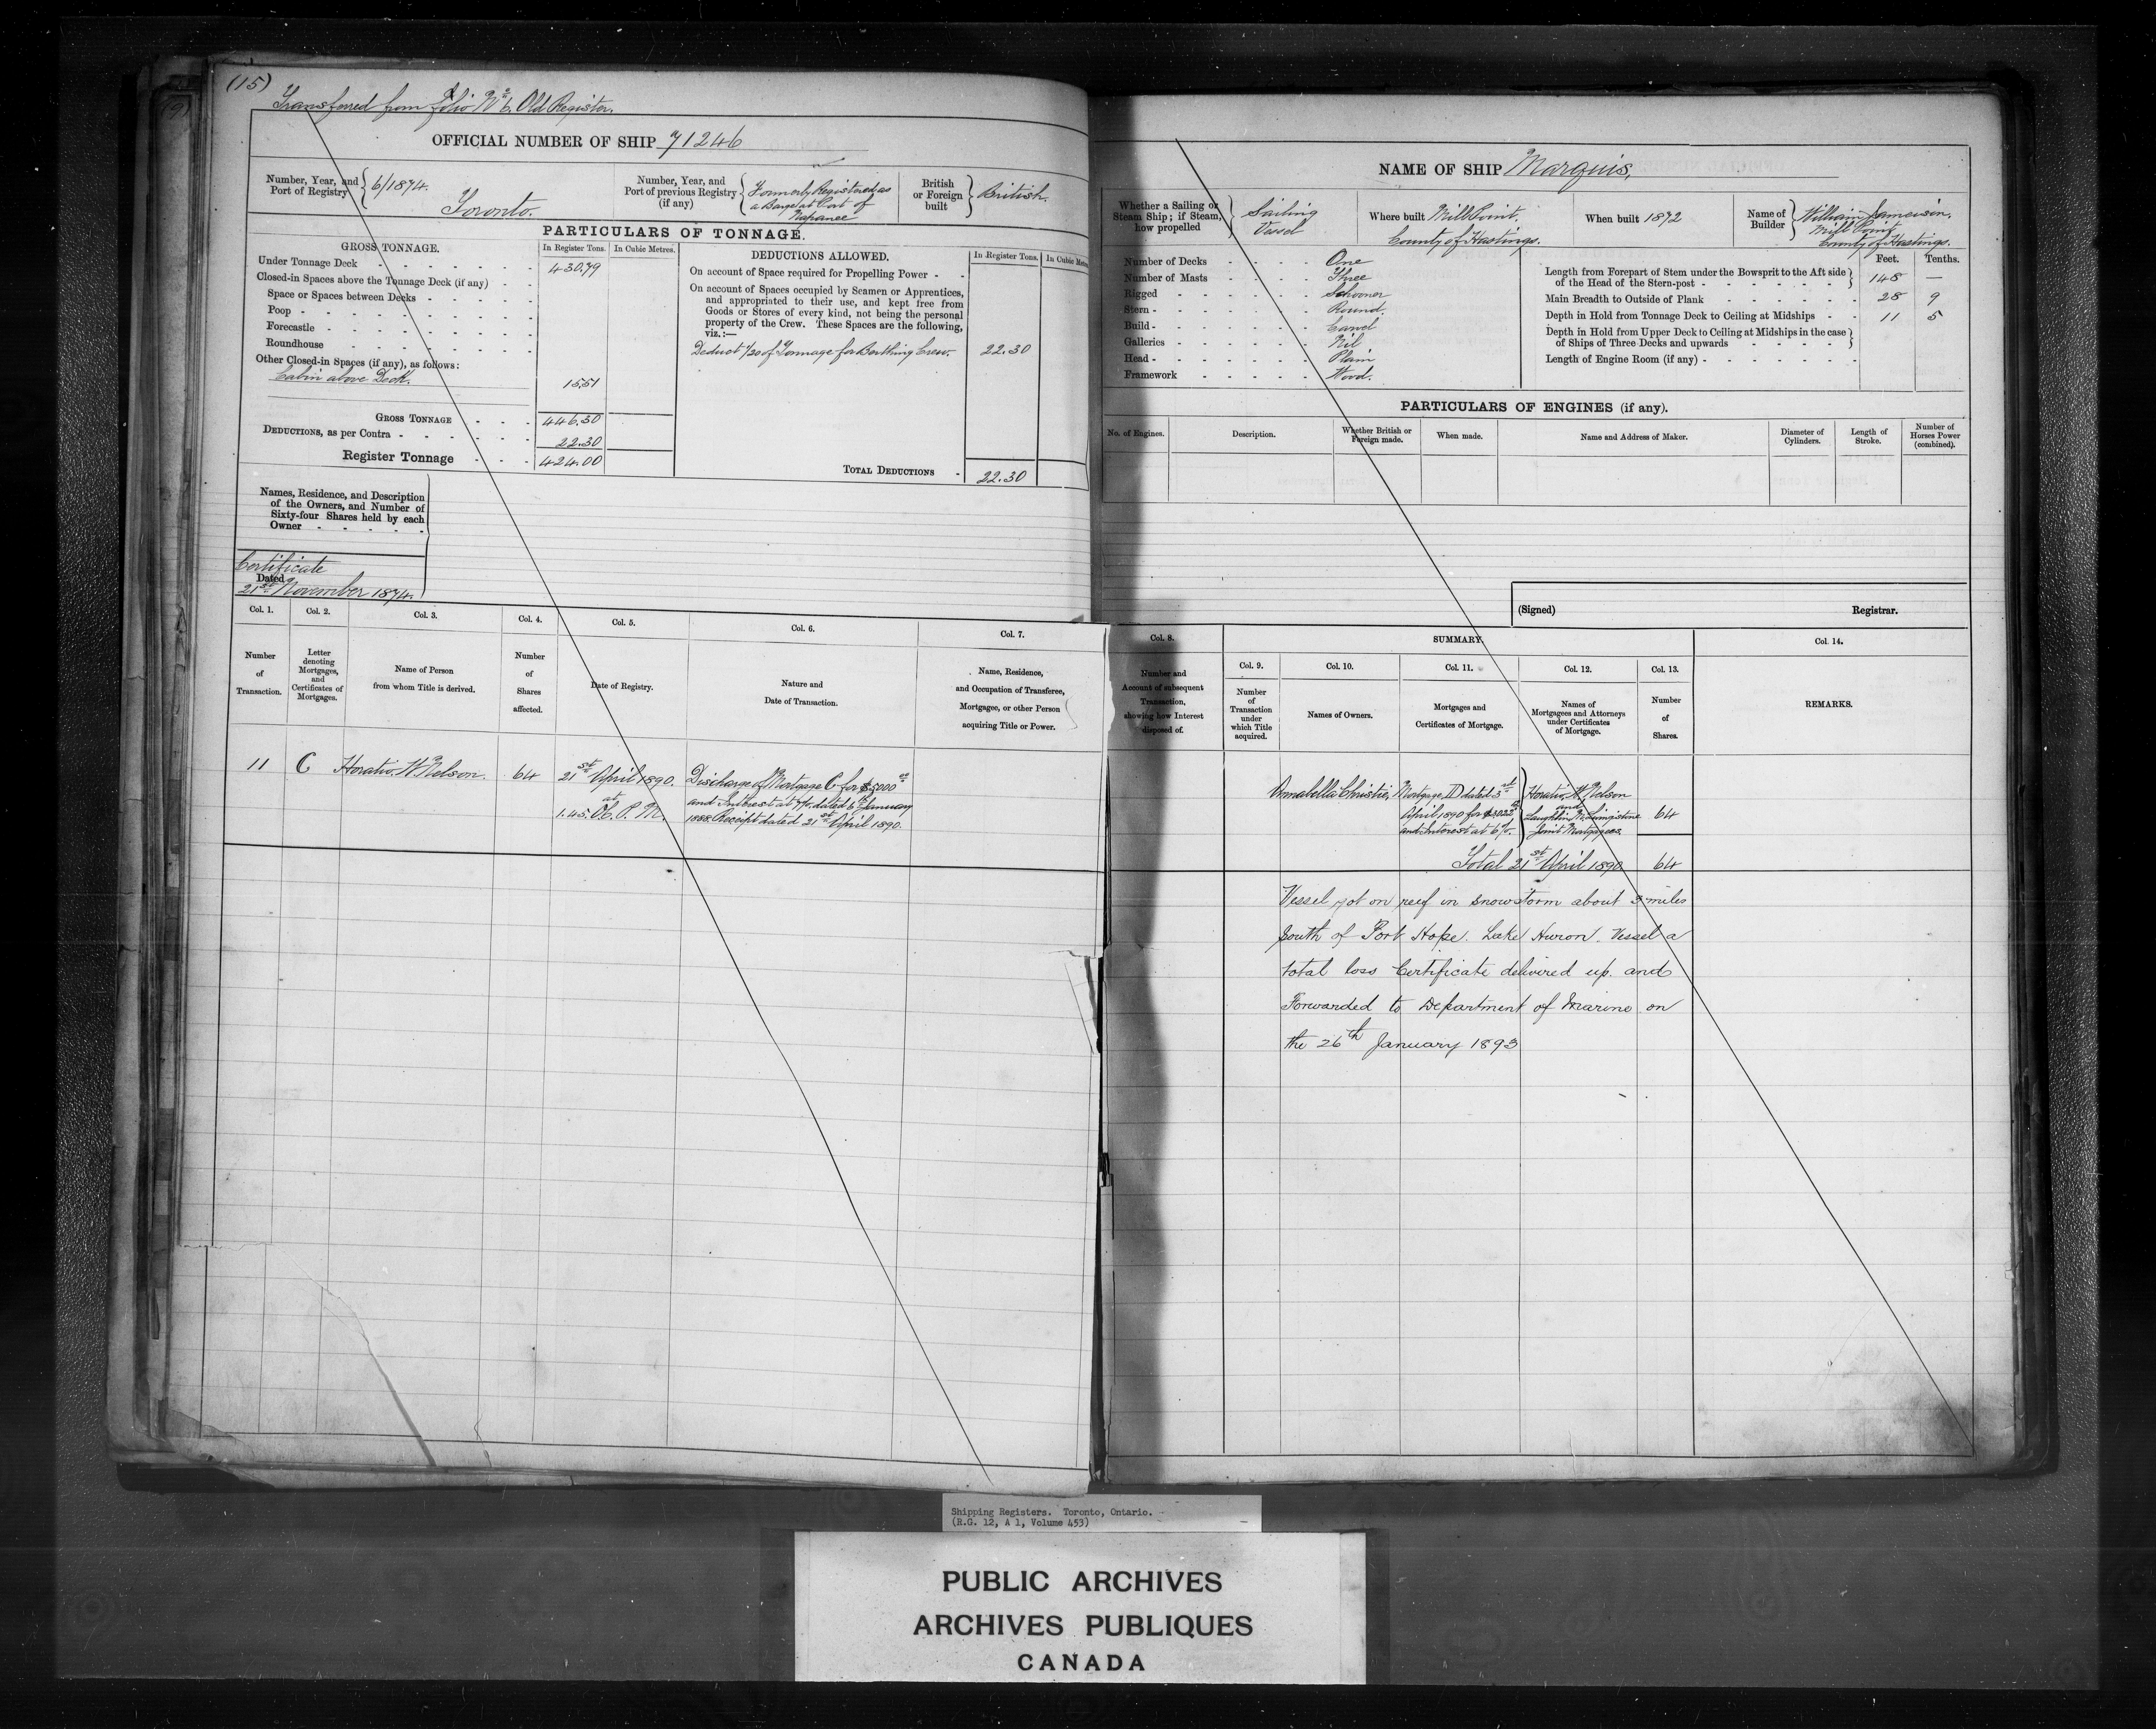 (15)
Transferred from Folio No 6, Old Register.
OFFICIAL NUMBER OF SHIP 71246
Number, Year, and Port of Registry } 6/1874. Toronto.
Number, Year, and Port of previous Registry (if any) { Formerly Registered as a Barge at Port of Napanee
British or Foreign built } British.
PARTICULARS OF TONNAGE.
GROSS TONNAGE.
In Register Tons.
In Cubic Metres.
Under Tonnage Deck 430.79
Closed-in Spaces above the Tonnage Deck (if any)
Space or Spaces between Decks
Poop
Forecastle
Roundhouse
Other Closed-in Spaces (if any), as follows:
Cabin above Deck. 15.51
GROSS TONNAGE 446.30
DEDUCTIONS, as per Contra 22.30
Register Tonnage 424.00
DEDUCTIONS ALLOWED.
In Register Tons.
In Cubic Met
On account of Space required for Propelling Power
On account of Spaces occupied by Seamen or Apprentices,
and appropriated to their use, and kept free from
Goods or Stores of every kind, not being the personal
property of the Crew. These Spaces are the following,
viz.:—
Deduct 1/20 of Tonnage for Berthing Crew. 22.30
TOTAL DEDUCTIONS 22.30
Names, Residence, and Description
of the Owners, and Number of
Sixty-four Shares held by each
Owner
Certificate
Dated
21st November 1874.
Col. 1.
Number of Transaction.
Col. 2.
Letter denoting Mortgages, and Certificates of Mortgages.
Col. 3.
Name of Person from whom Title is derived.
Col. 4.
Number of Shares affected.
Col. 5.
Date of Registry.
Col. 6.
Nature and Date of Transaction.
Col. 7.
Name, Residence, and Occupation of Transferee, Mortgagee, or other Person acquiring Title or Power.
11
C
Horatio W. Nelson.
64
21st April 1890.
at
1.45. Oc. P. M.
Discharge of Mortgage C for $5000 00
and Interest at 7%. dated 6th January
1888. Receipt dated 21st April 1890.
NAME OF SHIP Marquis,
Whether a Sailing or Steam Ship; if Steam, how propelled } Sailing Vessel
Where built Mill Point, County of Hastings.
When built 1872
Name of Builder } William Jameison, Mill Point County of Hastings.
Number of Decks One
Number of Masts Three
Rigged Schooner
Stern Round.
Build Carvel
Galleries Nil
Head Plain
Framework Wood.
Feet. Tenths.
Length from Forepart of Stem under the Bowsprit to the Aft side of the Head of the Stern-post 148 —
Main Breadth to Outside of Plank 28 9
Depth in Hold from Tonnage Deck to Ceiling at Midships 11 5
Depth in Hold from Upper Deck to Ceiling at Midships in the case of Ships of Three Decks and upwards
Length of Engine Room (if any)
PARTICULARS OF ENGINES (if any).
No. of Engines.
Description.
Whether British or Foreign made.
When made.
Name and Address of Maker.
Diameter of Cylinders.
Length of Stroke.
Number of Horses Power (combined).
(Signed) Registrar.
Col. 8.
Number and Account of subsequent Transaction, showing how Interest disposed of.
SUMMARY.
Col. 9.
Number of Transaction under which Title acquired.
Col. 10.
Names of Owners.
Col. 11.
Mortgages and Certificates of Mortgage.
Col. 12.
Names of Mortgagees and Attorneys under Certificates of Mortgage.
Col. 13.
Number of Shares.
Col. 14.
REMARKS.
Annabella Christie,
Mortgage D dated 3rd
April 1890 for
and Interest at 6%.
Horatio W. Nelson
and
Laughlin Livingstone
Joint Mortgagees.
64
Total 21st April 1890 64
Vessel got on reef in snowstorm about 3 miles
South of Port Hope. Lake Huron. Vessel a
total loss Certificate delivered up. and
Forwarded to Department of Marine on
the 26th January 1893
Shipping Registers. Toronto, Ontario.
(R.G. 12, A 1, Volume 453)
PUBLIC ARCHIVES
ARCHIVES PUBLIQUES
CANADA